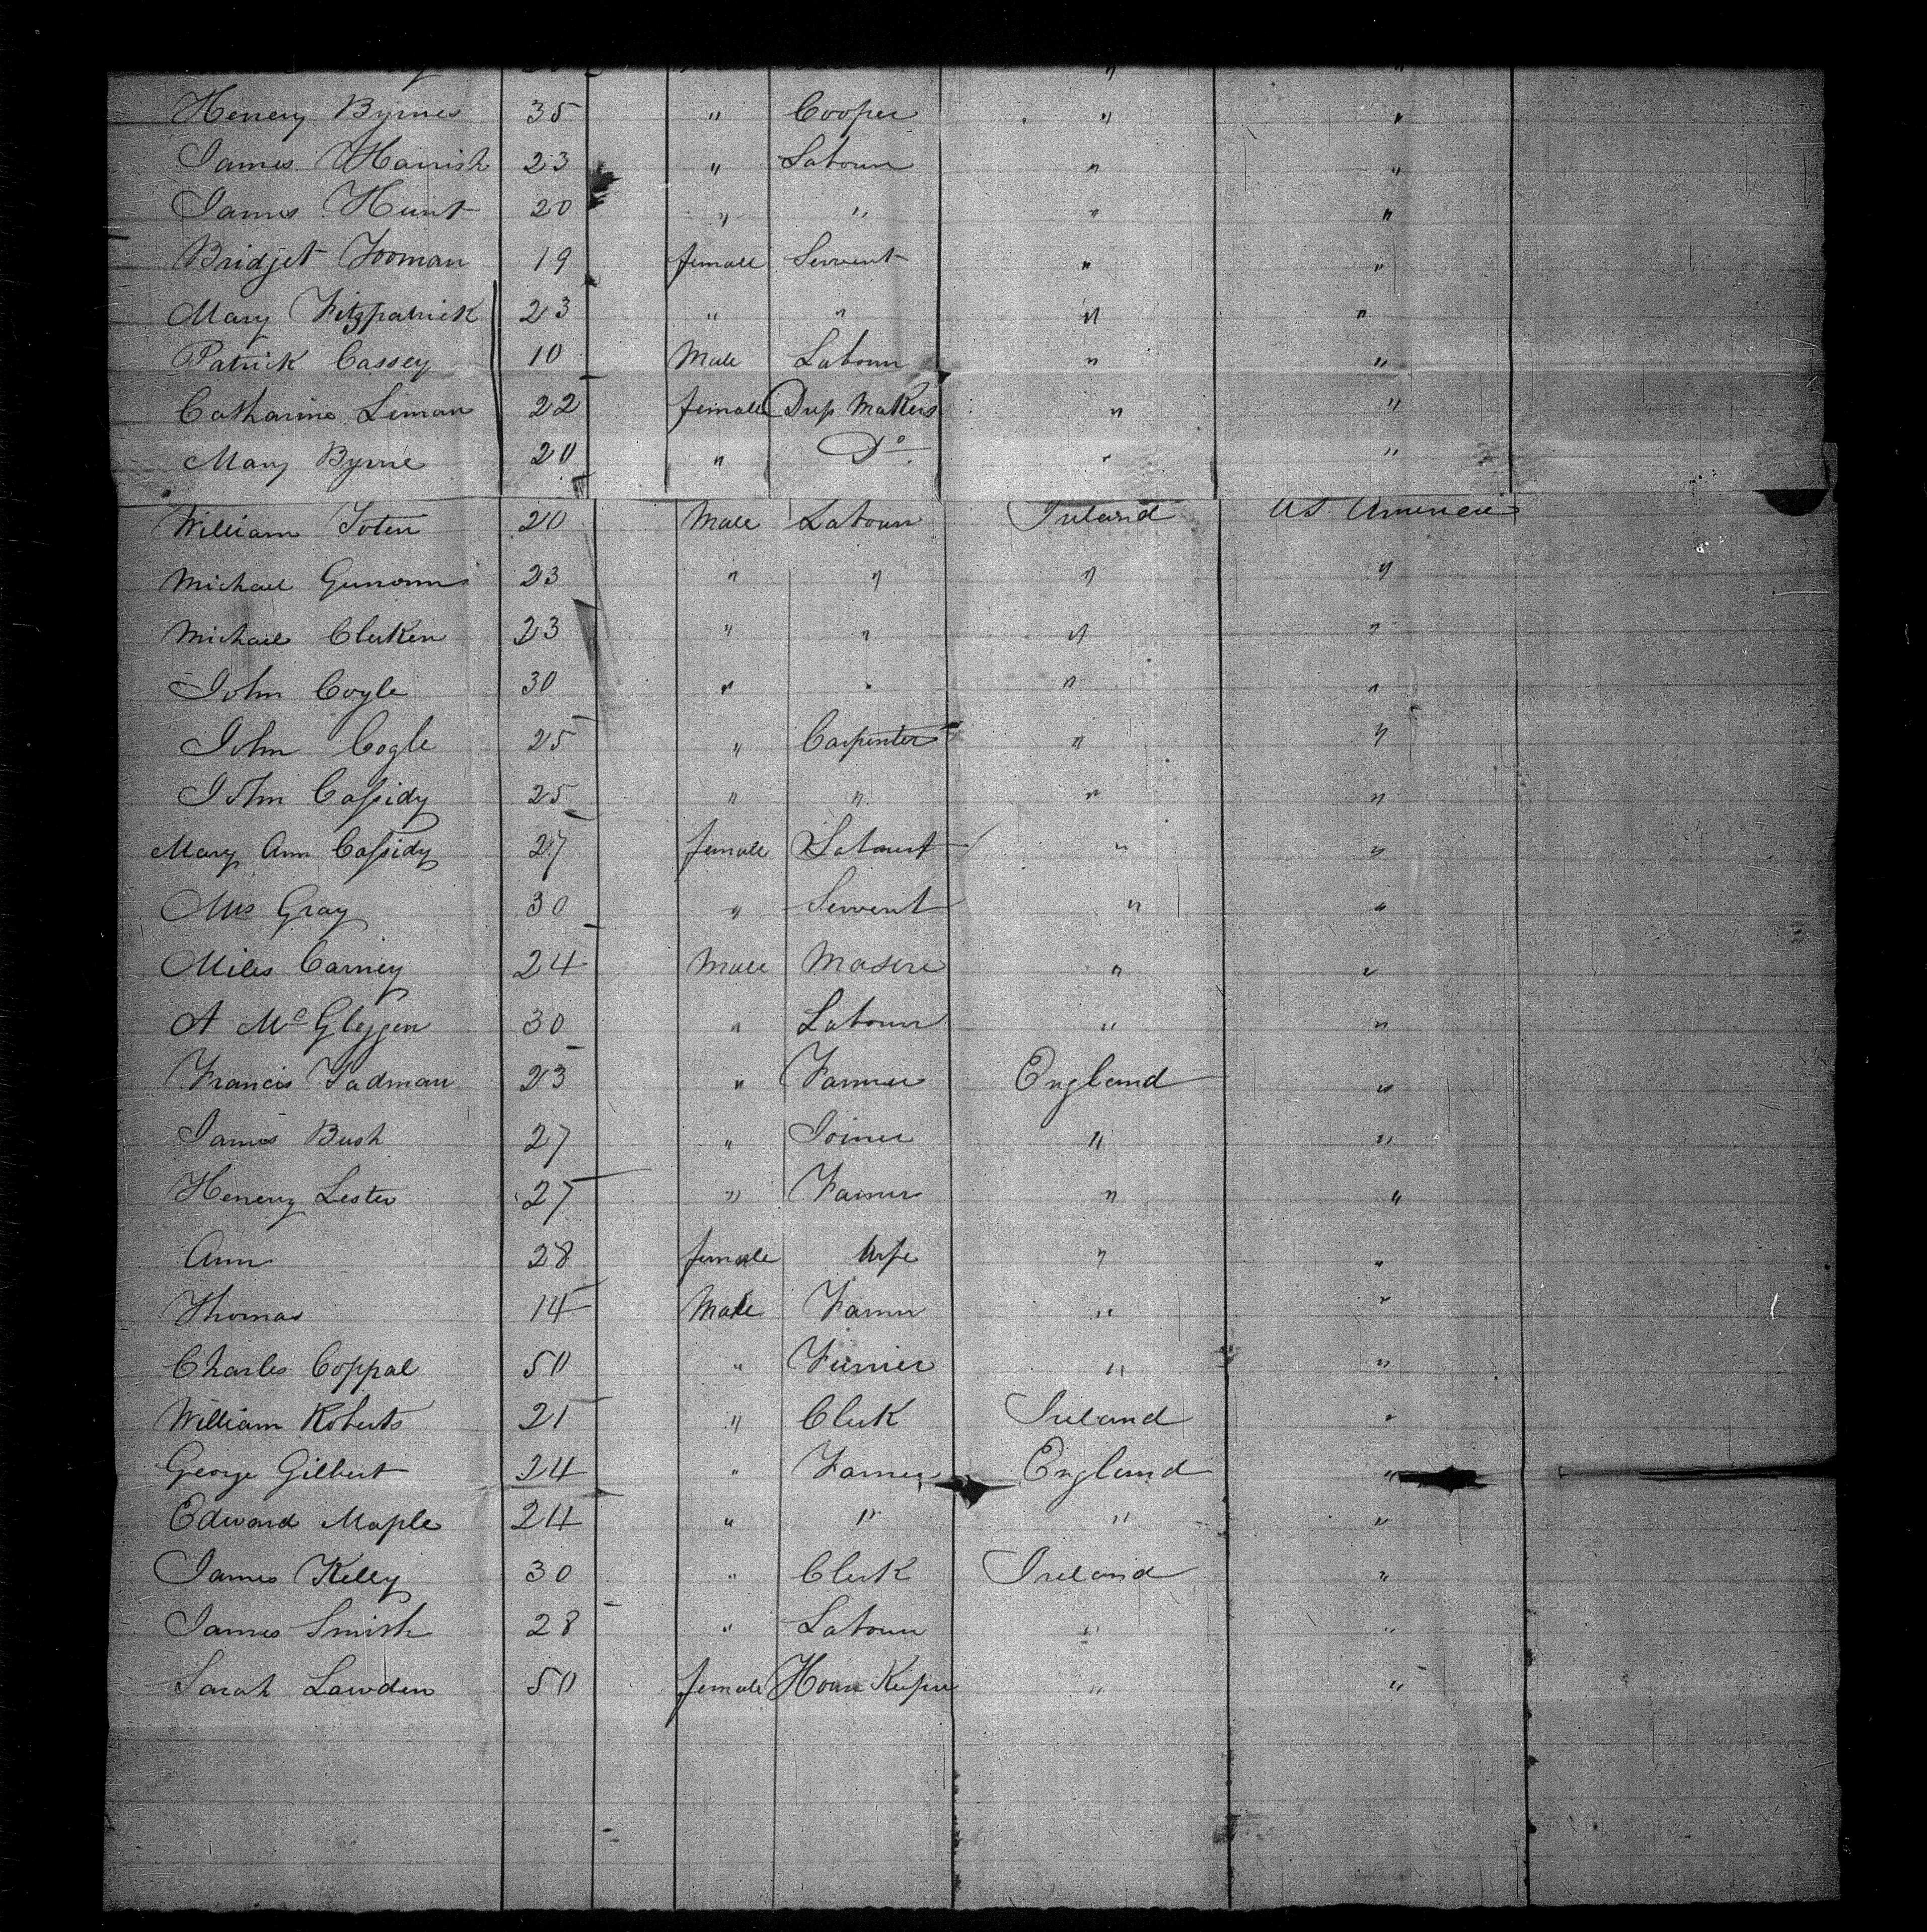 Henery Byrnes 35 " Cooper " "
James Harrish 23 " Labour " "
James Hunt 20 " " " "
Bridjet Tooman 19 female Servent " "
Mary Fitzpatrick 23 " " " "
Patrick Cassey 10 Male Labour " "
Catharine Leman 22 female Dress Makers " "
Mary Byrne 20 " Do " "
William Toten 20 Male Labour Ireland US America
Michael 23 " " " "
Michael Clerken 23 " " " "
John Coyle 30 " " " "
John Cogle 25 " Carpenter " "
John Cassidy 25 " " " "
Mary Ann Cassidy 27 female " "
Mrs Gray 30 " Servent " "
Miles Carney 24 Male " "
A Mc Gleggen 30 " Labour " "
Francis Tadman 23 " Farmer England "
James Bush 27 " Joiner " "
Henery Lester 27 " Farmer " "
Ann 28 female Wife " "
Thomas 14 Male Farmer " "
Charles Coppal 50 " Furrier " "
William Roberts 21 " Clerk Ireland "
George Gilbert 24 " Farmer England "
Edward Maple 24 " " " "
James Kelly 30 " Clerk Ireland "
James Smith 28 " Labour " "
Sarah Lawden 50 female House Keeper " "